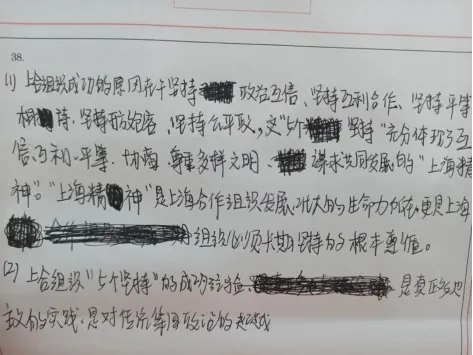 38.
(1) 上合组织成功的原因在于坚持政治互信、坚持互利合作、坚持平等
相待、坚持开放包容、坚持公平取,这"5个坚持"充分体现了互
信、互利、平等、协商、尊重多样文明、谋求共同发展的"上海精
神"。"上海精神"是上海合作组织发展、壮大的生命力所在,更是上海
组织必须长期坚持的根本遵循。
(2) 上合组织"5个坚持"的成功经验是真正多边
主义的实践,是对传统集团政治的超越